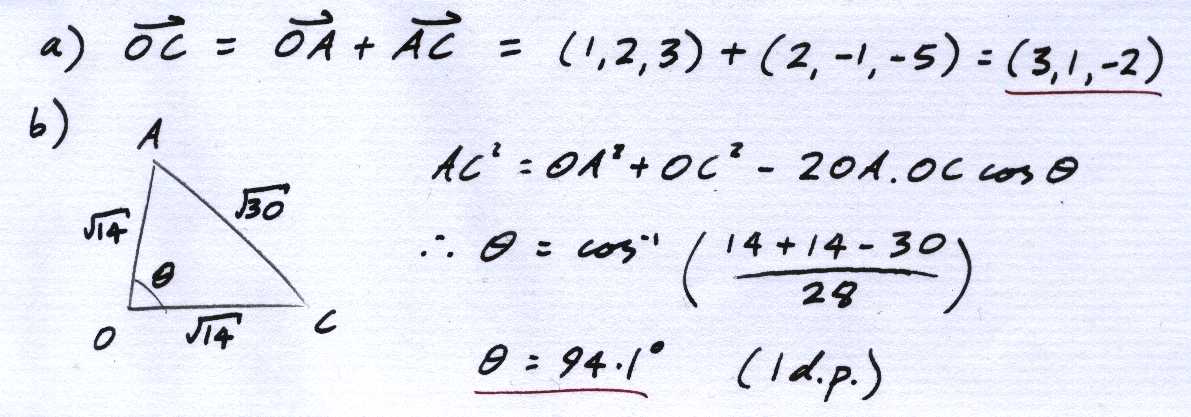 a) OC⃗ = OA⃗ + AC⃗ = (1,2,3) + (2,-1,-5) = (3,1,-2)
b)
A
√14
√30
θ
O
√14
C
AC² = OA² + OC² - 2OA.OC cos θ
∴ θ = cos⁻¹ ( (14+14-30) / 28 )
θ = 94.1° (1 d.p.)